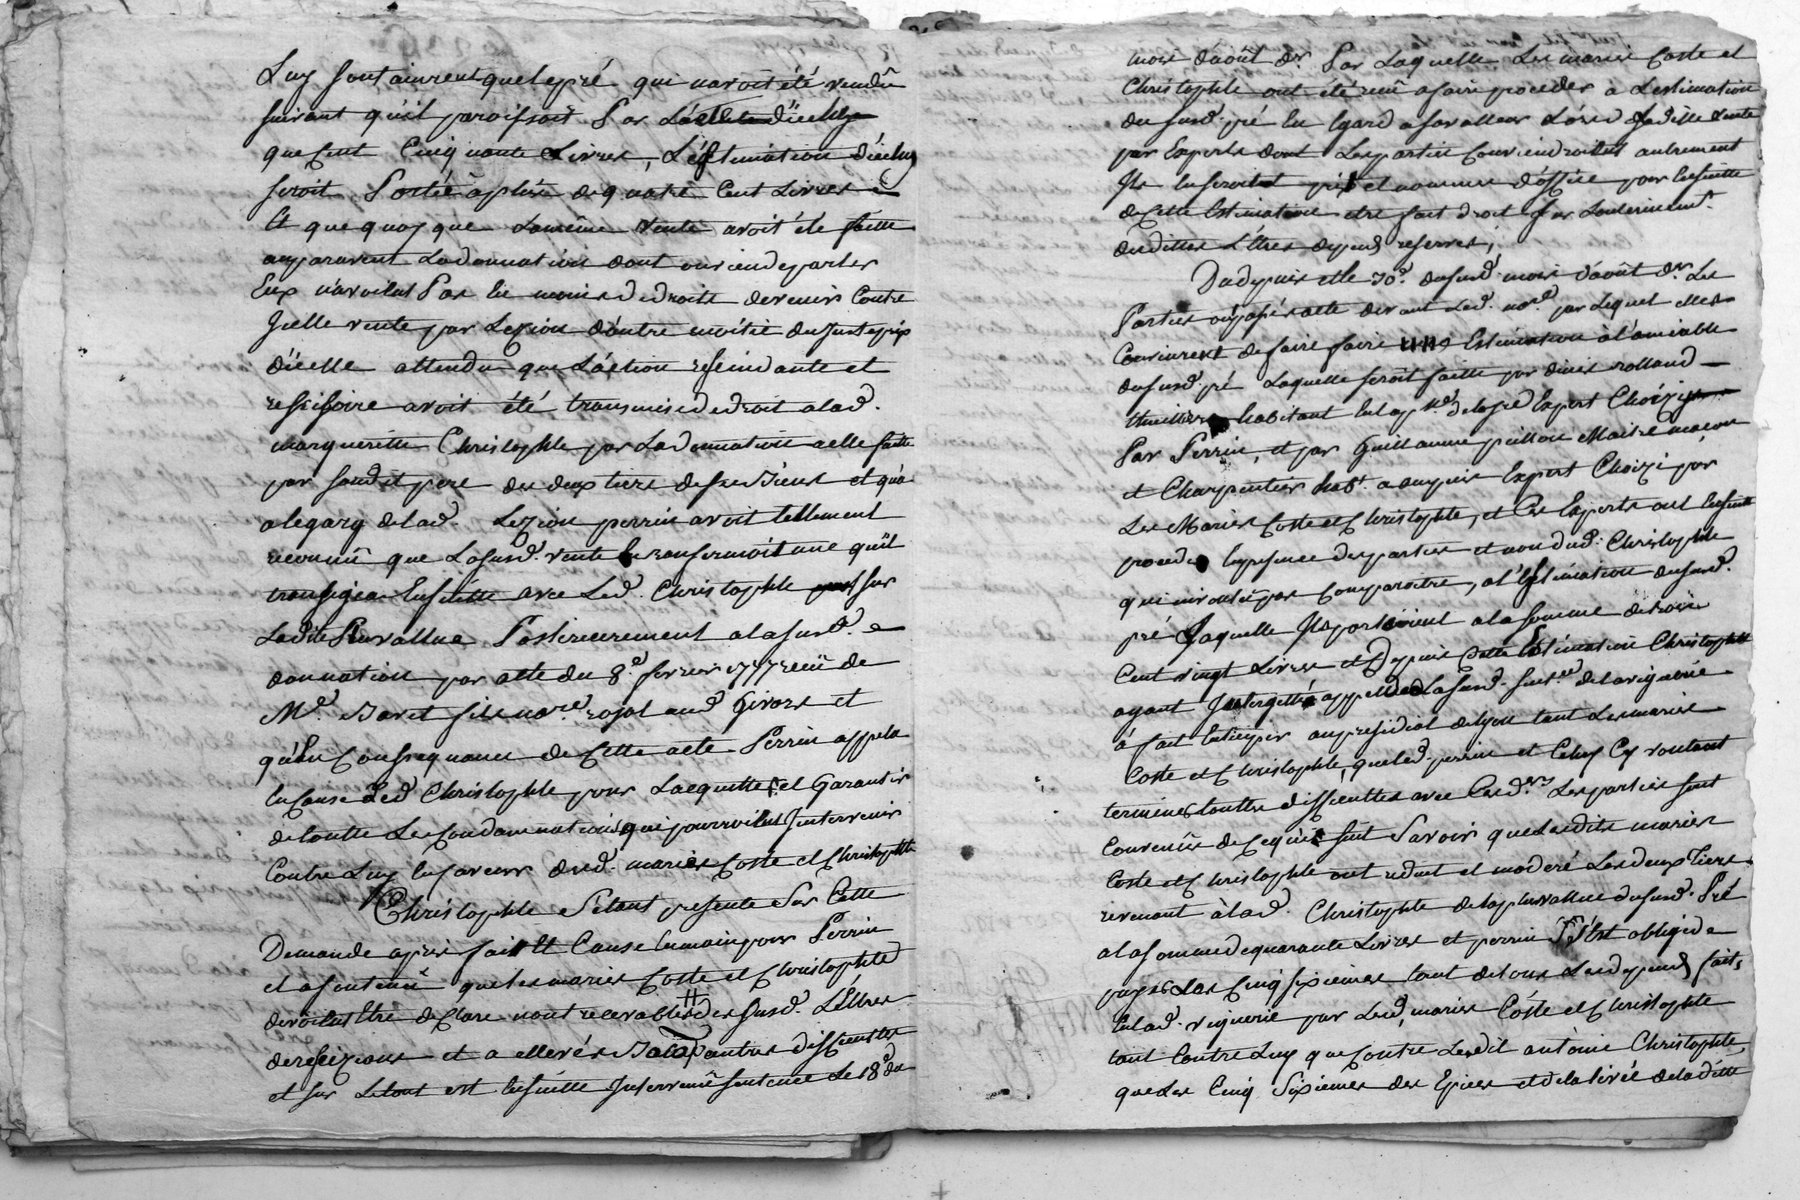 Luy soutainrent que le pré qui n'avoit été vendû
suivant qu'il paroissoit Par L'acte d'icelluy
que Cent Cinquante Livres, L'éstimation d'icelluy
seroit Portée à plus de quatre Cent Livres
Et que quoy que La même Vente avoit éte faitte
auparavent La donnation dont on vien de parler
Eux n'avoient Pas Eu moins de droits de venir Contre
Jcelle vente par Lezion d'outre moitié du Juste prix
d'icelle attendu que L'action rescindante et
rescisoire avoit été transmise de droit a lad.
marguerite Christophle par La donnation a elle faitte
par sondit pere des deux tiers de ses Biens et qu'a
a legard de lad. Lezion perrin avoit tellement
reconnû que La susd. vente En renfermoit une qu'il
transigea Ensuitte avec Led. Christophle sur
Ladite Plusvallue Postireurement a la susd.
donnation par acte du 8.e fevrier 1777 reçû de
M.e Baret fils no.re royal aud. Givors et
qu'En Conssequance de Cette acte Perrin appela
En Cause Led. Christophle pour L'acquitter et Garantir
de toutte Les Condamnations qui pourroient Jntervenir
Contre Luy En faveurs desd. mariés Coste et Christophle
Christophle S'étant presente Sur Cette
Demande apris fait Et Cause En main pour Perrin
et a soutenû que les mariés Coste et Christophle
devoient Etre déClare nont recevables des susd. LEttres
de rescizions et a ellevés autres difficultes
et sur Le tout est Ensuitte Jntervenû sentence Le 18.e du
mois d'août d.r Par Laquelle Les mariés Coste et
Christophle ont été reçû a faire proceder à L'estimation
du susd. pré Eu Egard a sa valleur Lors de Ladite Vente
par Experts dont Les parties Conviendroient autrement
Jls En seroient pris et nommés d'office pour Ensuitte
de Cette Estimation etre fait droit sur L'enterinement
desdittes Lettres depend reservés;
Du depuis et le 30.e du susd. mois d'août d.er Les
Parties ont passé acte devant Led. no.re par Lequel elles
Convinrent de faire faire une Estimation à l'amiable
du susd. pré Laquelle seroit faitte par rolland
habitant En la p.sse Expert Choizy
Par Perrin, et par Guillaume Maitre maçon
et Charpentier hab.t Expert Choizi par
Les Mariés Coste et Christophle, et Ces Experts ont Ensuitte
procedé En presence des parties et non dud. Christophle
qui n'y voulu pas Comparoitre, a l'Estimation du susd.
pré Laquelle Jls porterent a la somme de trois
Cent vingt Livres et Depuis Cette Estimation Christophle
ayant Jnterjetté appel de La susd. sent.ce de la viguerie
à fait Entimper au presidial de Lyon tant Les mariés
Coste et Christophle, que led. perrin et Celuy Cy voulant
terminer toutte difficultes avec Ces d.ers Les parties sont
Convenûs de Ce qui suit Savoir que Lesdits mariés
Coste et Christophle ont reduit et moderé Les deux Tiers
revenant à lad. Christophle de la plusvallue du susd. Pré
a la somme de quarante Livres et perrin s'est obligé de
payer Les Cinq sixiemes tant de tous Les depends faits
En lad. viguerie par Lesd. mariés Coste et Christophle
tant Contre Luy que Contre Ledit antoine Christophle,
que Les Cinq Sixiemes des Epices et de la levée de la ditte